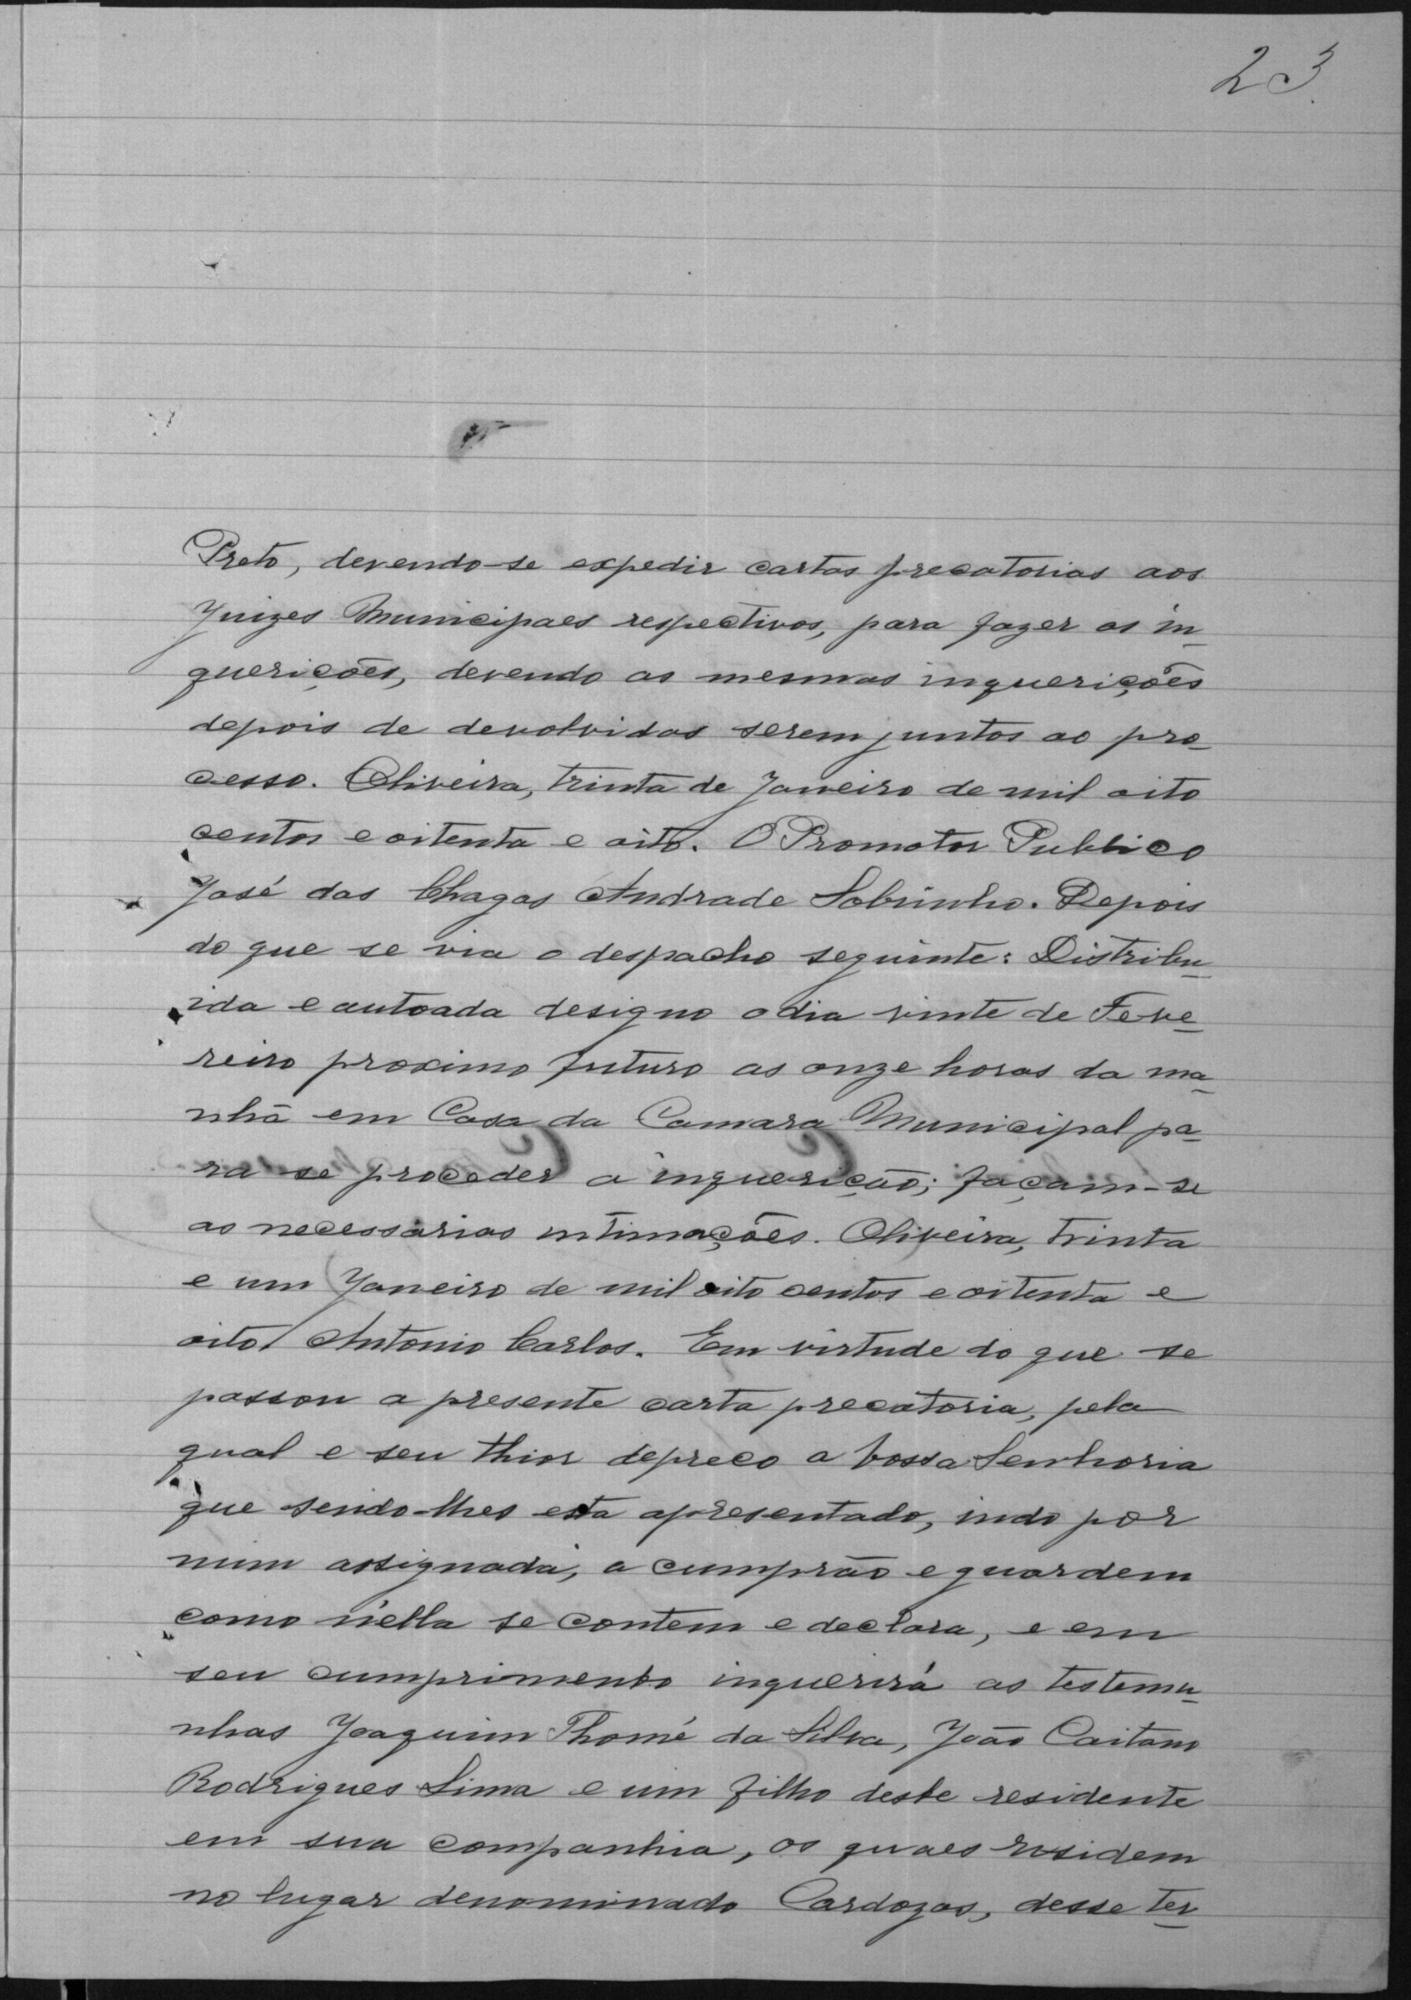 23
Preto, devendo-se expedir cartas precatorias aos
Juizes Municipaes respectivos, para fazer as in-
querições, devendo as mesmas inquerições
depois de devolvidas serem juntos ao pro-
cesso. Oliveira, trinta de Janeiro de mil oito
centos e oitenta e oito. O Promotor Publico
José das Chagas Andrade Sobrinho. Depois
do que se via o despacho seguinte: Distribu-
ida e autoada designo o dia vinte de Feve-
reiro proximo futuro as onze horas da ma-
nhã em Casa da Camara Municipal pa-
ra se proceder a inquerição; façam-se
as necessarias intimações. Oliveira, trinta
e um Janeiro de mil oito centos e oitenta e
oito. Antonio Carlos. Em virtude do que se
passou a presente carta precatoria, pela
qual e seu thior depreco a Vossa Senhoria
que sendo-lhes esta apresentado, indo por
mim assignada, a cumprão e guardem
como n'ella se contem e declara, e em
seu cumprimento inquerirá as testemu-
nhas Joaquim Thomé da Silva, João Caitano
Rodrigues Lima e um filho deste residente
em sua companhia, os quaes residem
no lugar denominado Cardozos, desse ter-